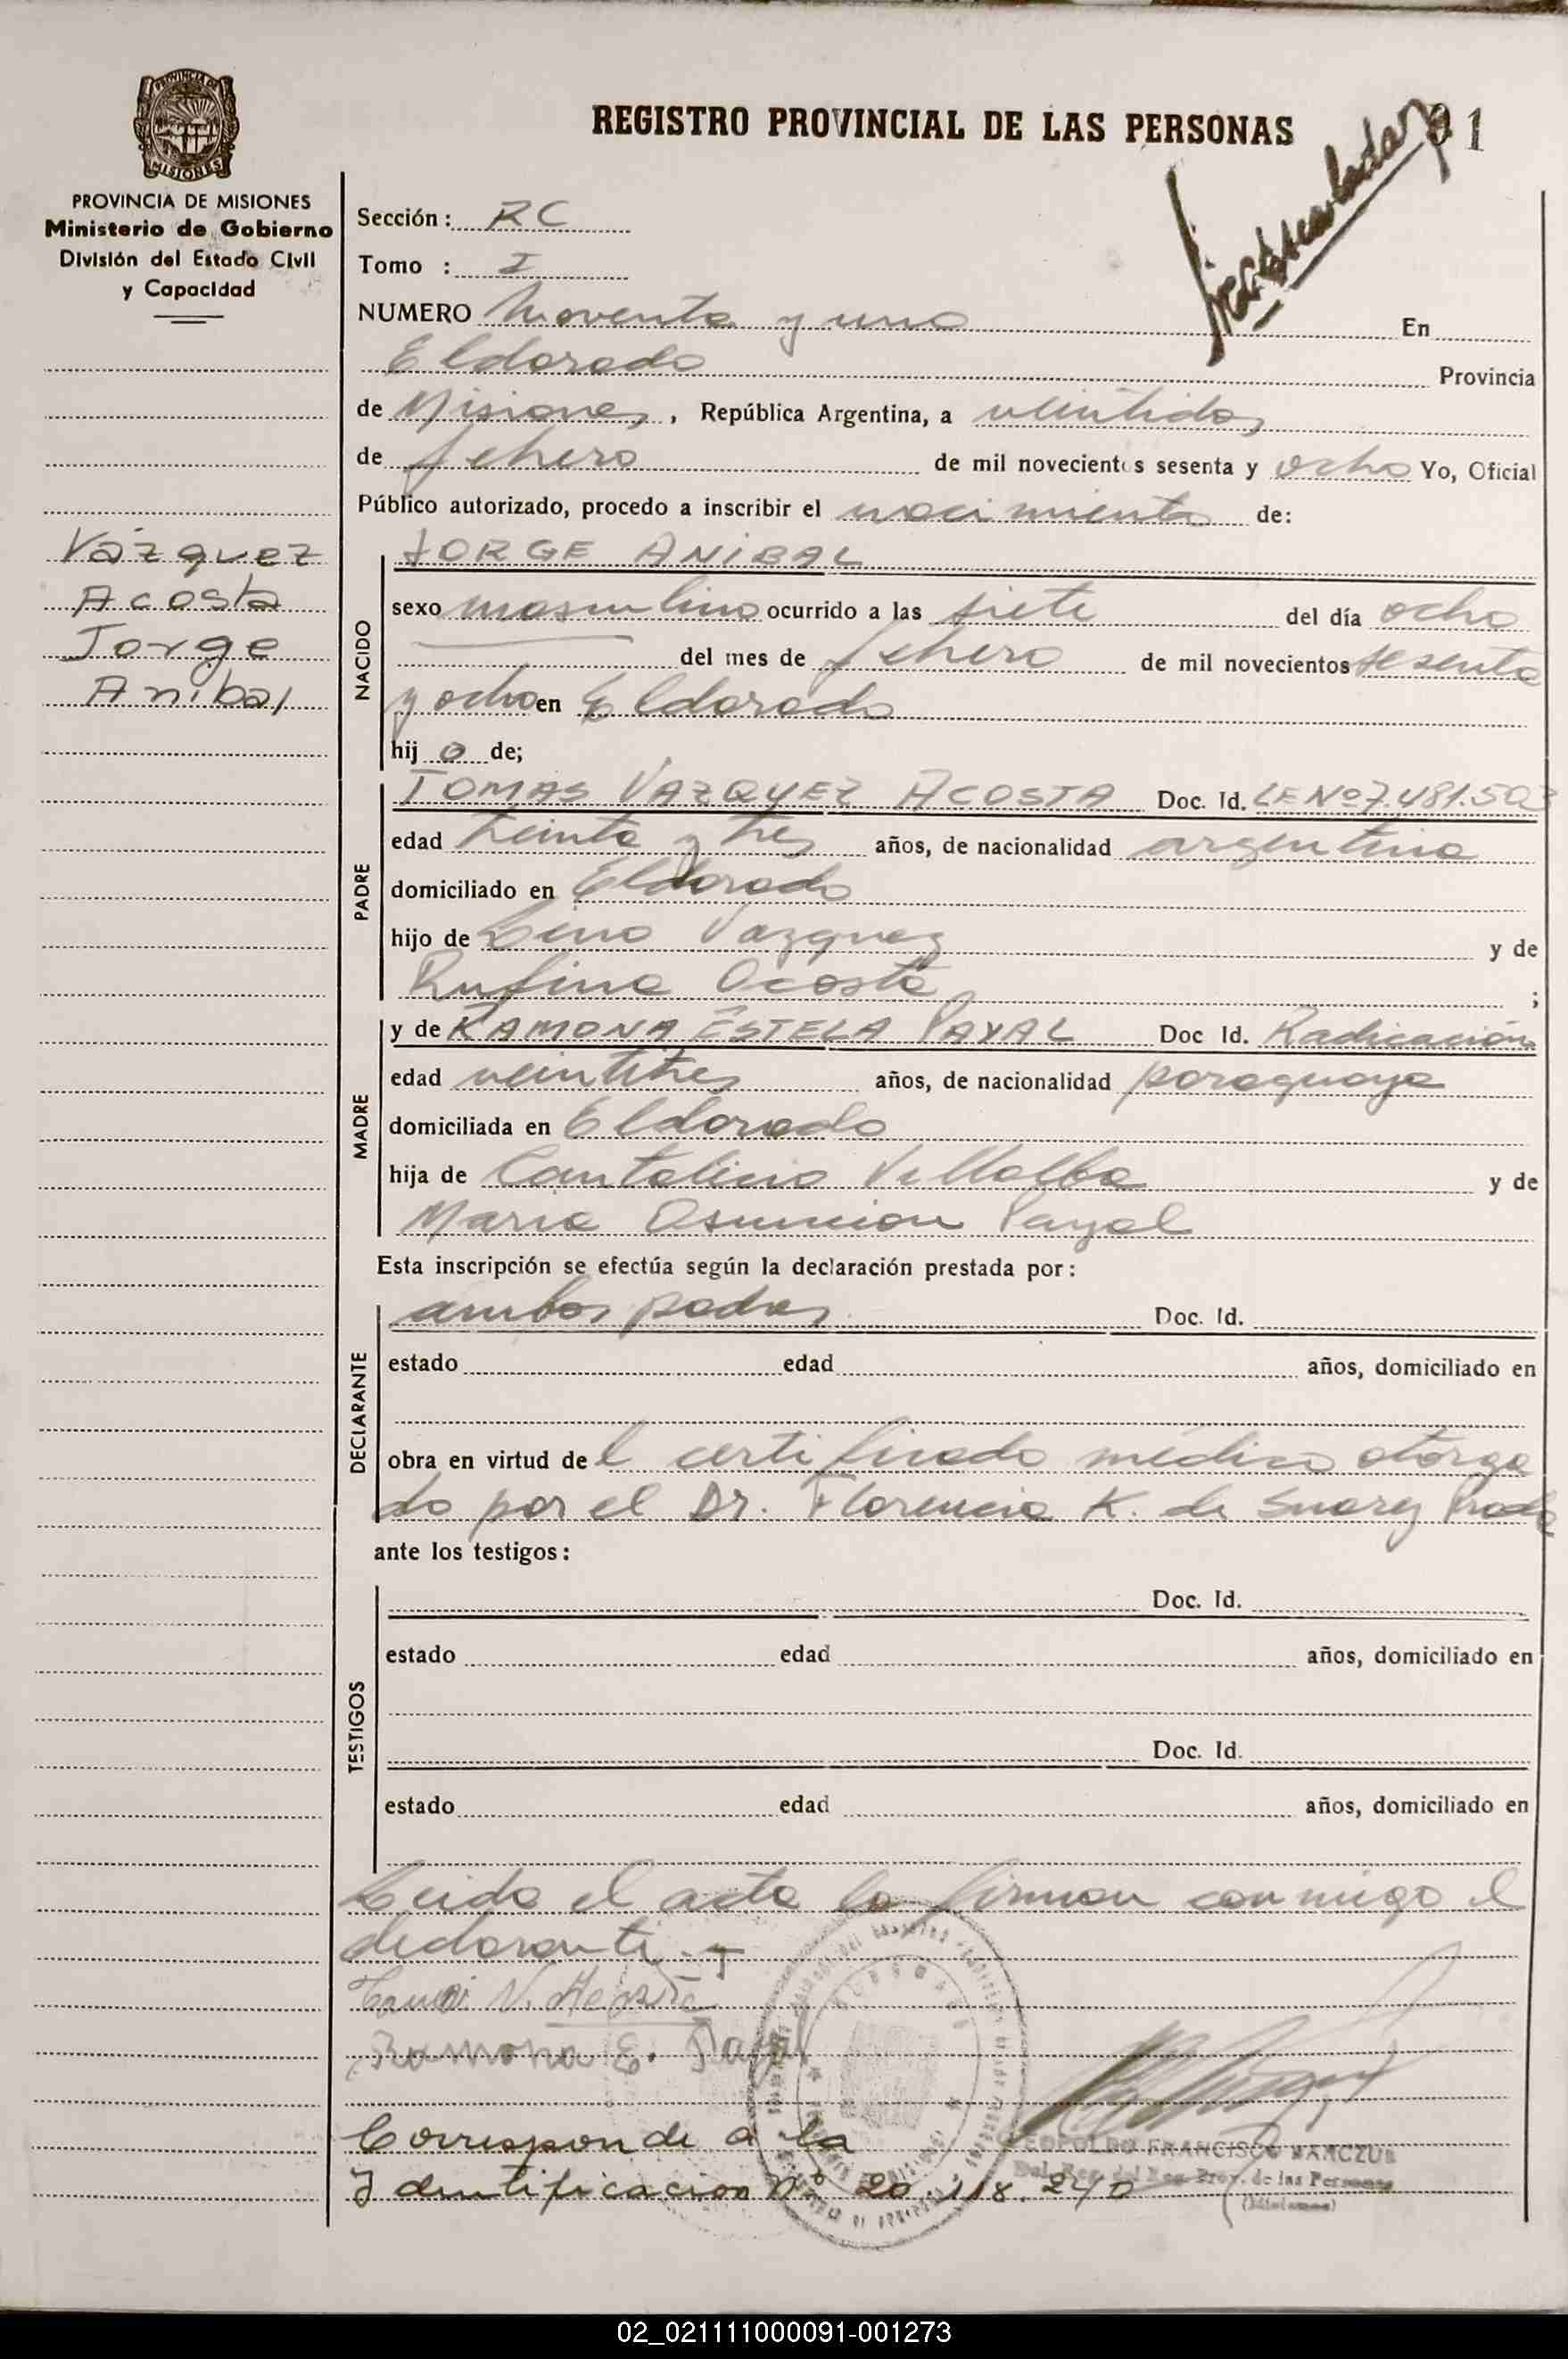 REGISTRO PROVINCIAL DE LAS PERSONAS
91
PROVINCIA DE MISIONES
Ministerio de Gobierno
División del Estado Civil
y Capacidad
Vázquez
Acosta
Jorge
Anibal
Sección: RC
Tomo : I
NUMERO Noventa y uno En
Eldorado Provincia
de Misiones, República Argentina, a veintidos
de febrero de mil novecientos sesenta y ocho Yo, Oficial
Público autorizado, procedo a inscribir el nacimiento de:
NACIDO
JORGE ANIBAL
sexo masculino ocurrido a las siete del día ocho
del mes de febrero de mil novecientos sesenta
y ocho en Eldorado
hij o de;
PADRE
TOMAS VAZQUEZ ACOSTA Doc. Id. LE Nº 7.481.503
edad treinta y tres años, de nacionalidad argentina
domiciliado en Eldorado
hijo de Lino Vazquez y de
Rufina Acosta ;
MADRE
y de RAMONA ESTELA PAYAL Doc Id. Radicación
edad veintitres años, de nacionalidad paraguaya
domiciliada en Eldorado
hija de Cantalicio Villalba y de
Maria Asuncion Payal
Esta inscripción se efectúa según la declaración prestada por:
DECLARANTE
ambos padres Doc. Id.
estado edad años, domiciliado en
obra en virtud del certificado médico otorga
do por el Dr. Florencia K. de Suarez
ante los testigos:
TESTIGOS
Doc. Id.
estado edad años, domiciliado en
Doc. Id.
estado edad años, domiciliado en
Leida el acta la firman conmigo el
declarante.-
Ramona E. Payal
Corresponde a la
Identificacion Nº 20.118.240
LEOPOLDO FRANCISCO
Del. Reg. del Reg. Prov. de las Personas
(Misiones)
02_021111000091-001273